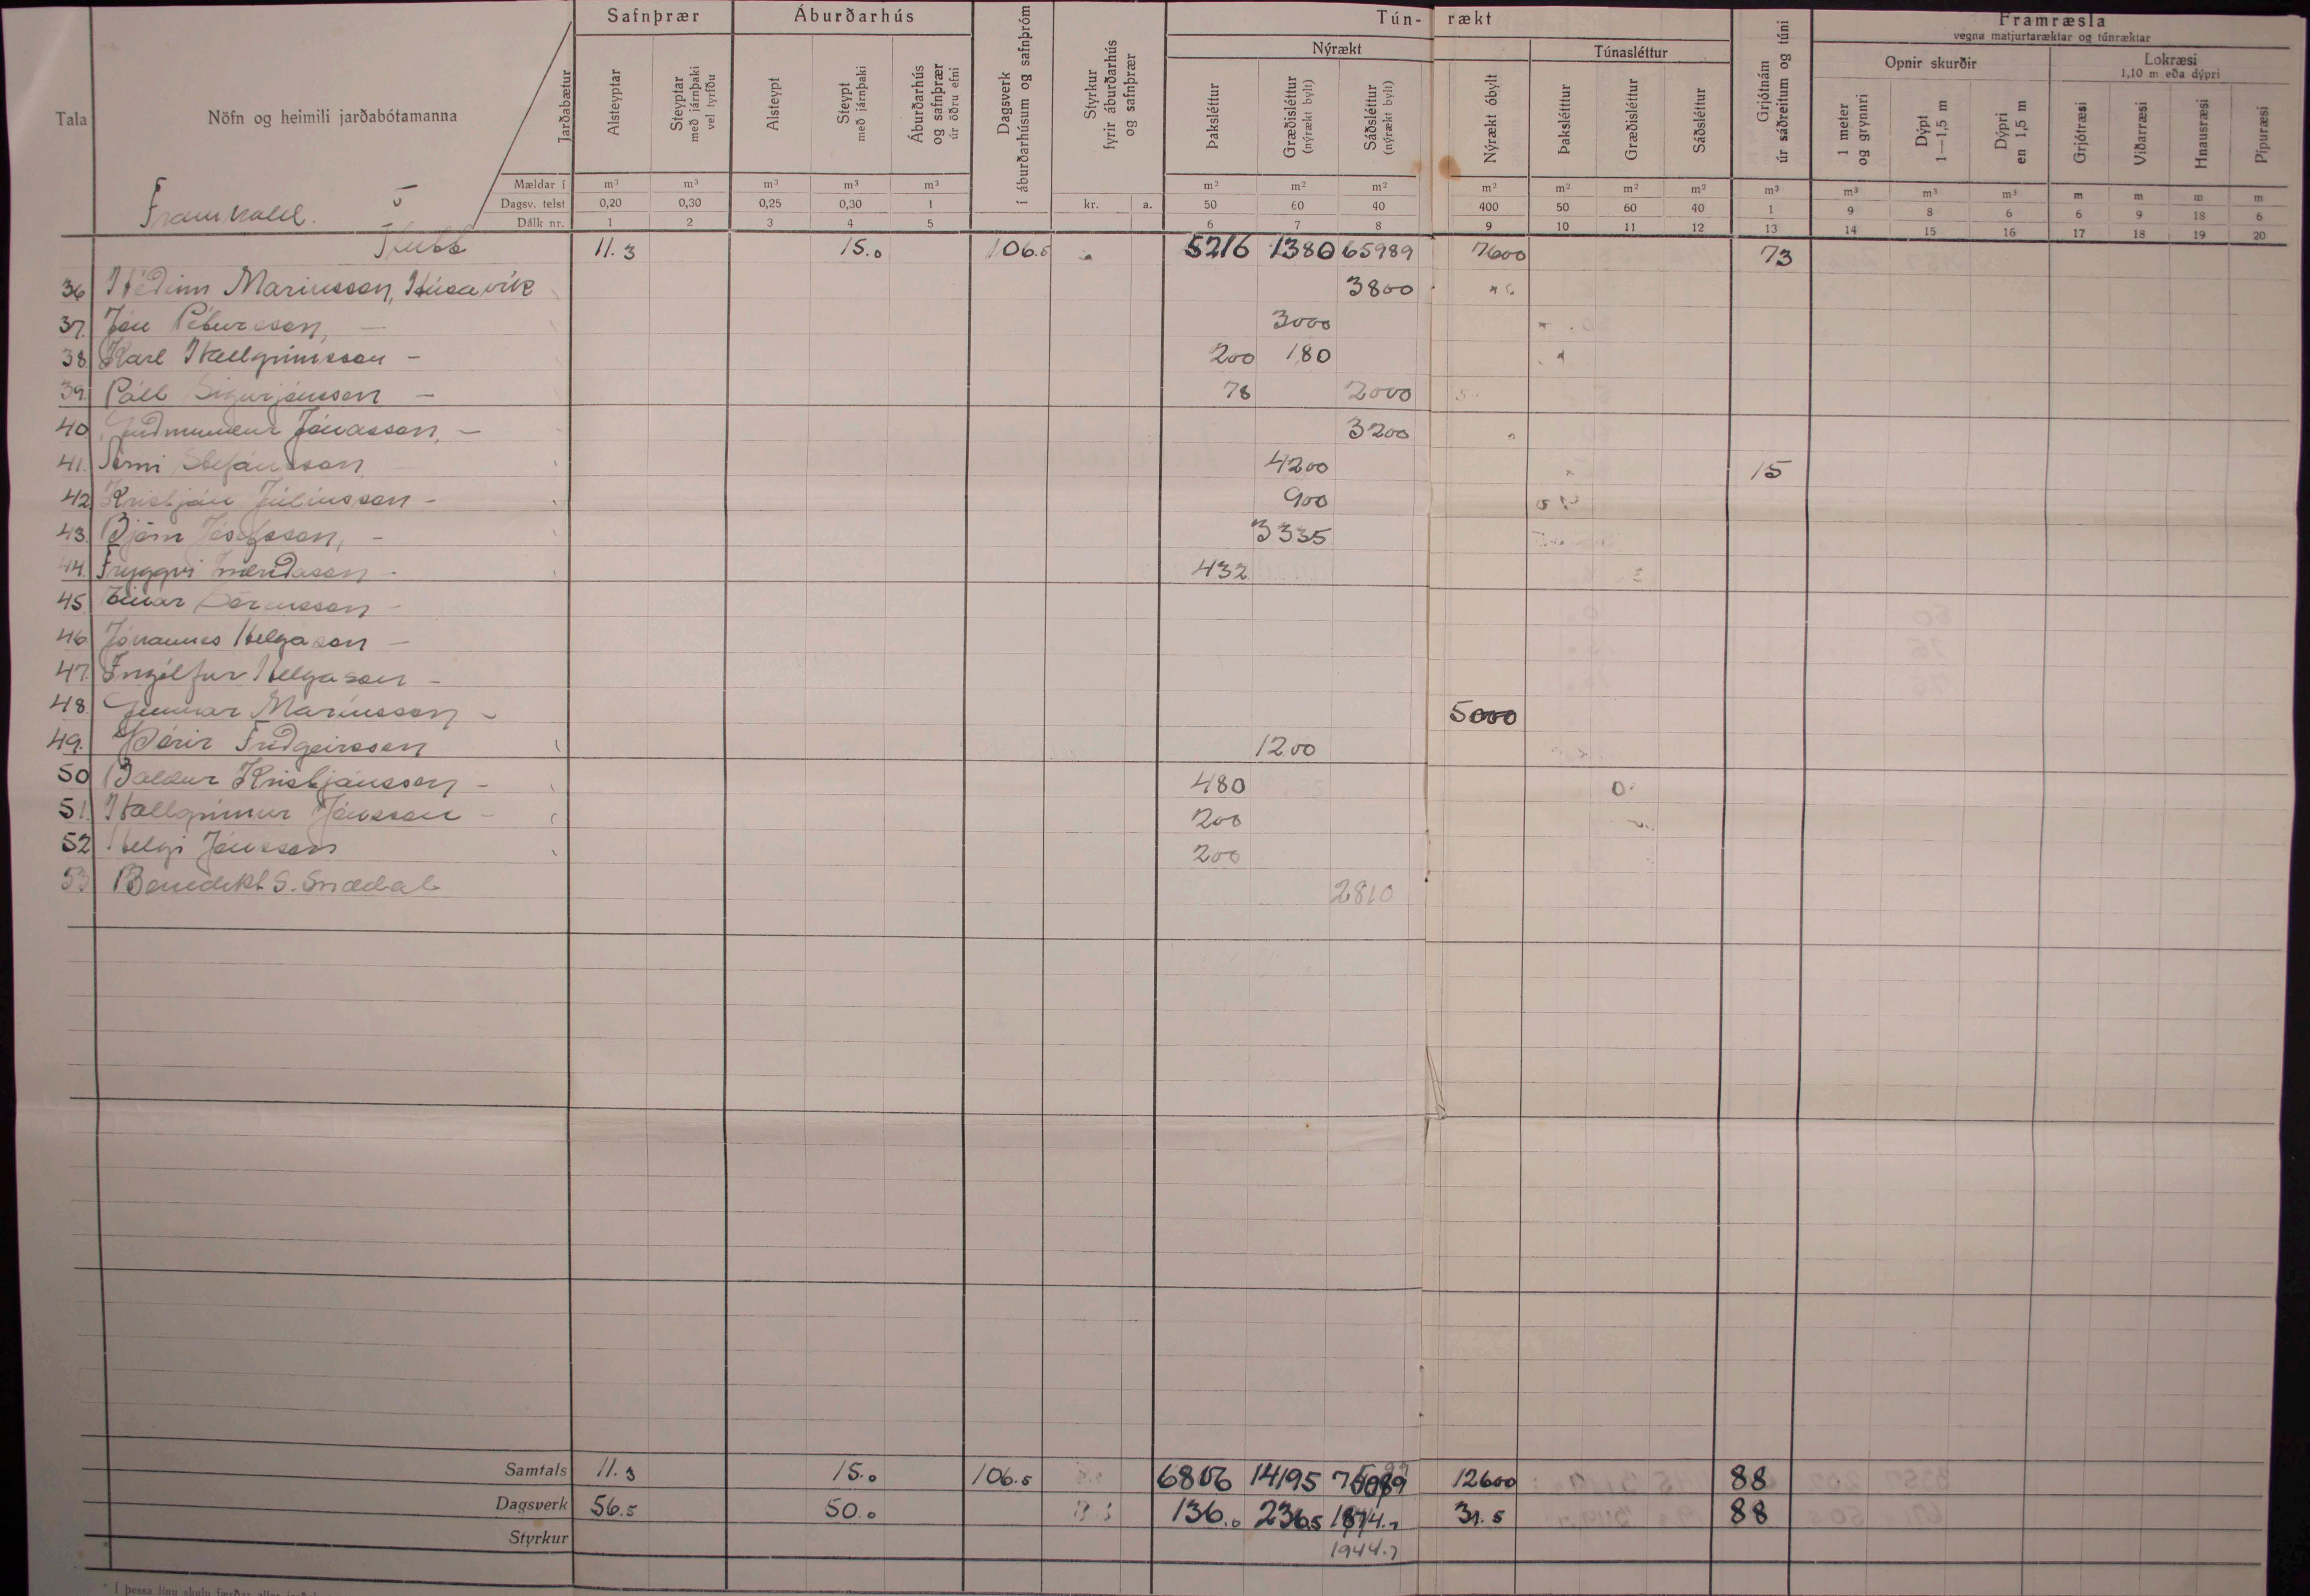 Safnþrær Áburðarhús Tún- rækt Framræsla
vegna matjurtaræktar og túnræktar
Nýrækt Túnasléttur Opnir skurðir Lokræsi
1,10 m eða dýpri
Tala Nöfn og heimili jarðabótamanna Jarðabætur Alsteyptar Steyptar með járnþaki vel tyrfðu Alsteypt Steypt með járnþaki Áburðarhús og safnþrær úr öðru efni Dagsverk í áburðarhúsum og safnþróm Styrkur fyrir áburðarhús og safnþrær Þaksléttur Græðisléttur (nýrækt bylt) Sáðsléttur (nýrækt bylt) Nýrækt óbylt Þakslétttur Græðisléttur Sáðsléttur Grjótnám úr sáðreitum og túni 1 meter og grynnri Dýpt 1—1,5 m Dýpri en 1,5 m Grjótræsi Viðarræsi Hnausræsi Pípuræsi
Mældar í m³ m³ m³ m³ m³ m² m² m² m² m² m² m² m³ m³ m³ m³ m m m m
Dagsv. telst 0,20 0,30 0,25 0,30 1 kr. a. 50 60 40 400 50 60 40 1 9 8 6 6 9 18 6
Dálk nr. 1 2 3 4 5 6 7 8 9 10 11 12 13 14 15 16 17 18 19 20
Framhald.
Flutt 11.3 15.0 106.5 5216 1380 65989 7600 73
36 Héðinn Maríusson, Húsavík 3800
37. Jón Pétursson, — 3000
38. Karl Hallgrímsson — 200 180
39. Páll Sigurjónsson — 78 2000
40. Guðmundur Jónasson, — 3200
41. Árni Stefánsson 4200 15
42 Kristján Júlíusson - 900
43. Björn Jósefsson, - 3335
44. Tryggvi Indriðason - 432
45 Einar Sörensson -
46 Jóhannes Helgason —
47. Ingólfur Helgason -
48. Gunnar Maríusson - 5000
49. Þórir Friðgeirsson 1200
50 Baldur Kristjánsson - 480
51. Hallgrímur Jónsson - 200
52 Helgi Jónsson 200
53 Benedikt S. Snædal 2810
Samtals 11.3 15.0 106.5 6806 14195 12600 88
Dagsverk 56.5 50.0 136.0 236.5 31.5 88
Styrkur 1944.7